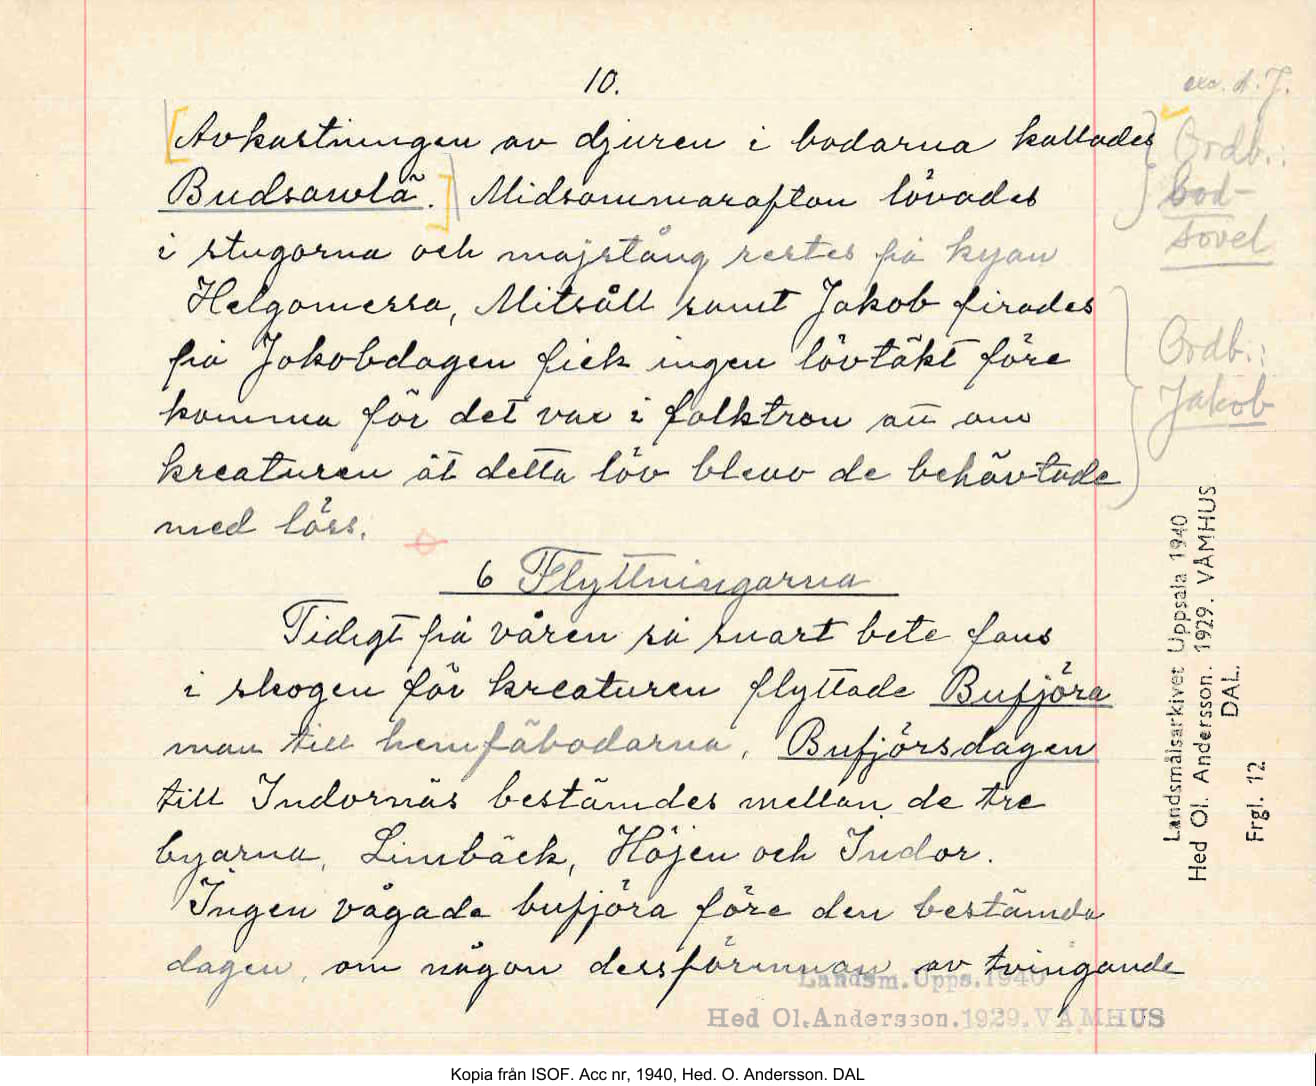 10.
exc. d. J.
[Avkastningen av djuren i bodarna kallades
Budsawlã.] Midsommarafton lövades
i stugorna och majstång restes på kyan
Helgomessa, Mitsåll samt Jakob firades
på Jakobdagen fick ingen lövtäkt före
komma för det var i folktron att om
kreaturen åt detta löv blevo de behävtade
med löss.
Ordb.:
bod-
sovel
Ordb.:
Jakob
6 Flyttningarna
Tidigt på våren så snart bete fans
i skogen för kreaturen flyttade Bufjöra
man till hemfäbodarna, Bufjörsdagen
till Indornäs bestämdes mellan de tre
byarna, Limbäck, Höjen och Indor.
Ingen vågade bufjöra före den bestämda
dagen, om någon dessförinnan av tvingande
Landsmålsarkivet Uppsala 1940
Hed Ol. Andersson. 1929. VÅMHUS
DAL.
Frgl. 12
Landsm. Upps. 1940
Hed Ol. Andersson. 1929. VÅMHUS
Kopia från ISOF. Acc nr, 1940, Hed. O. Andersson. DAL